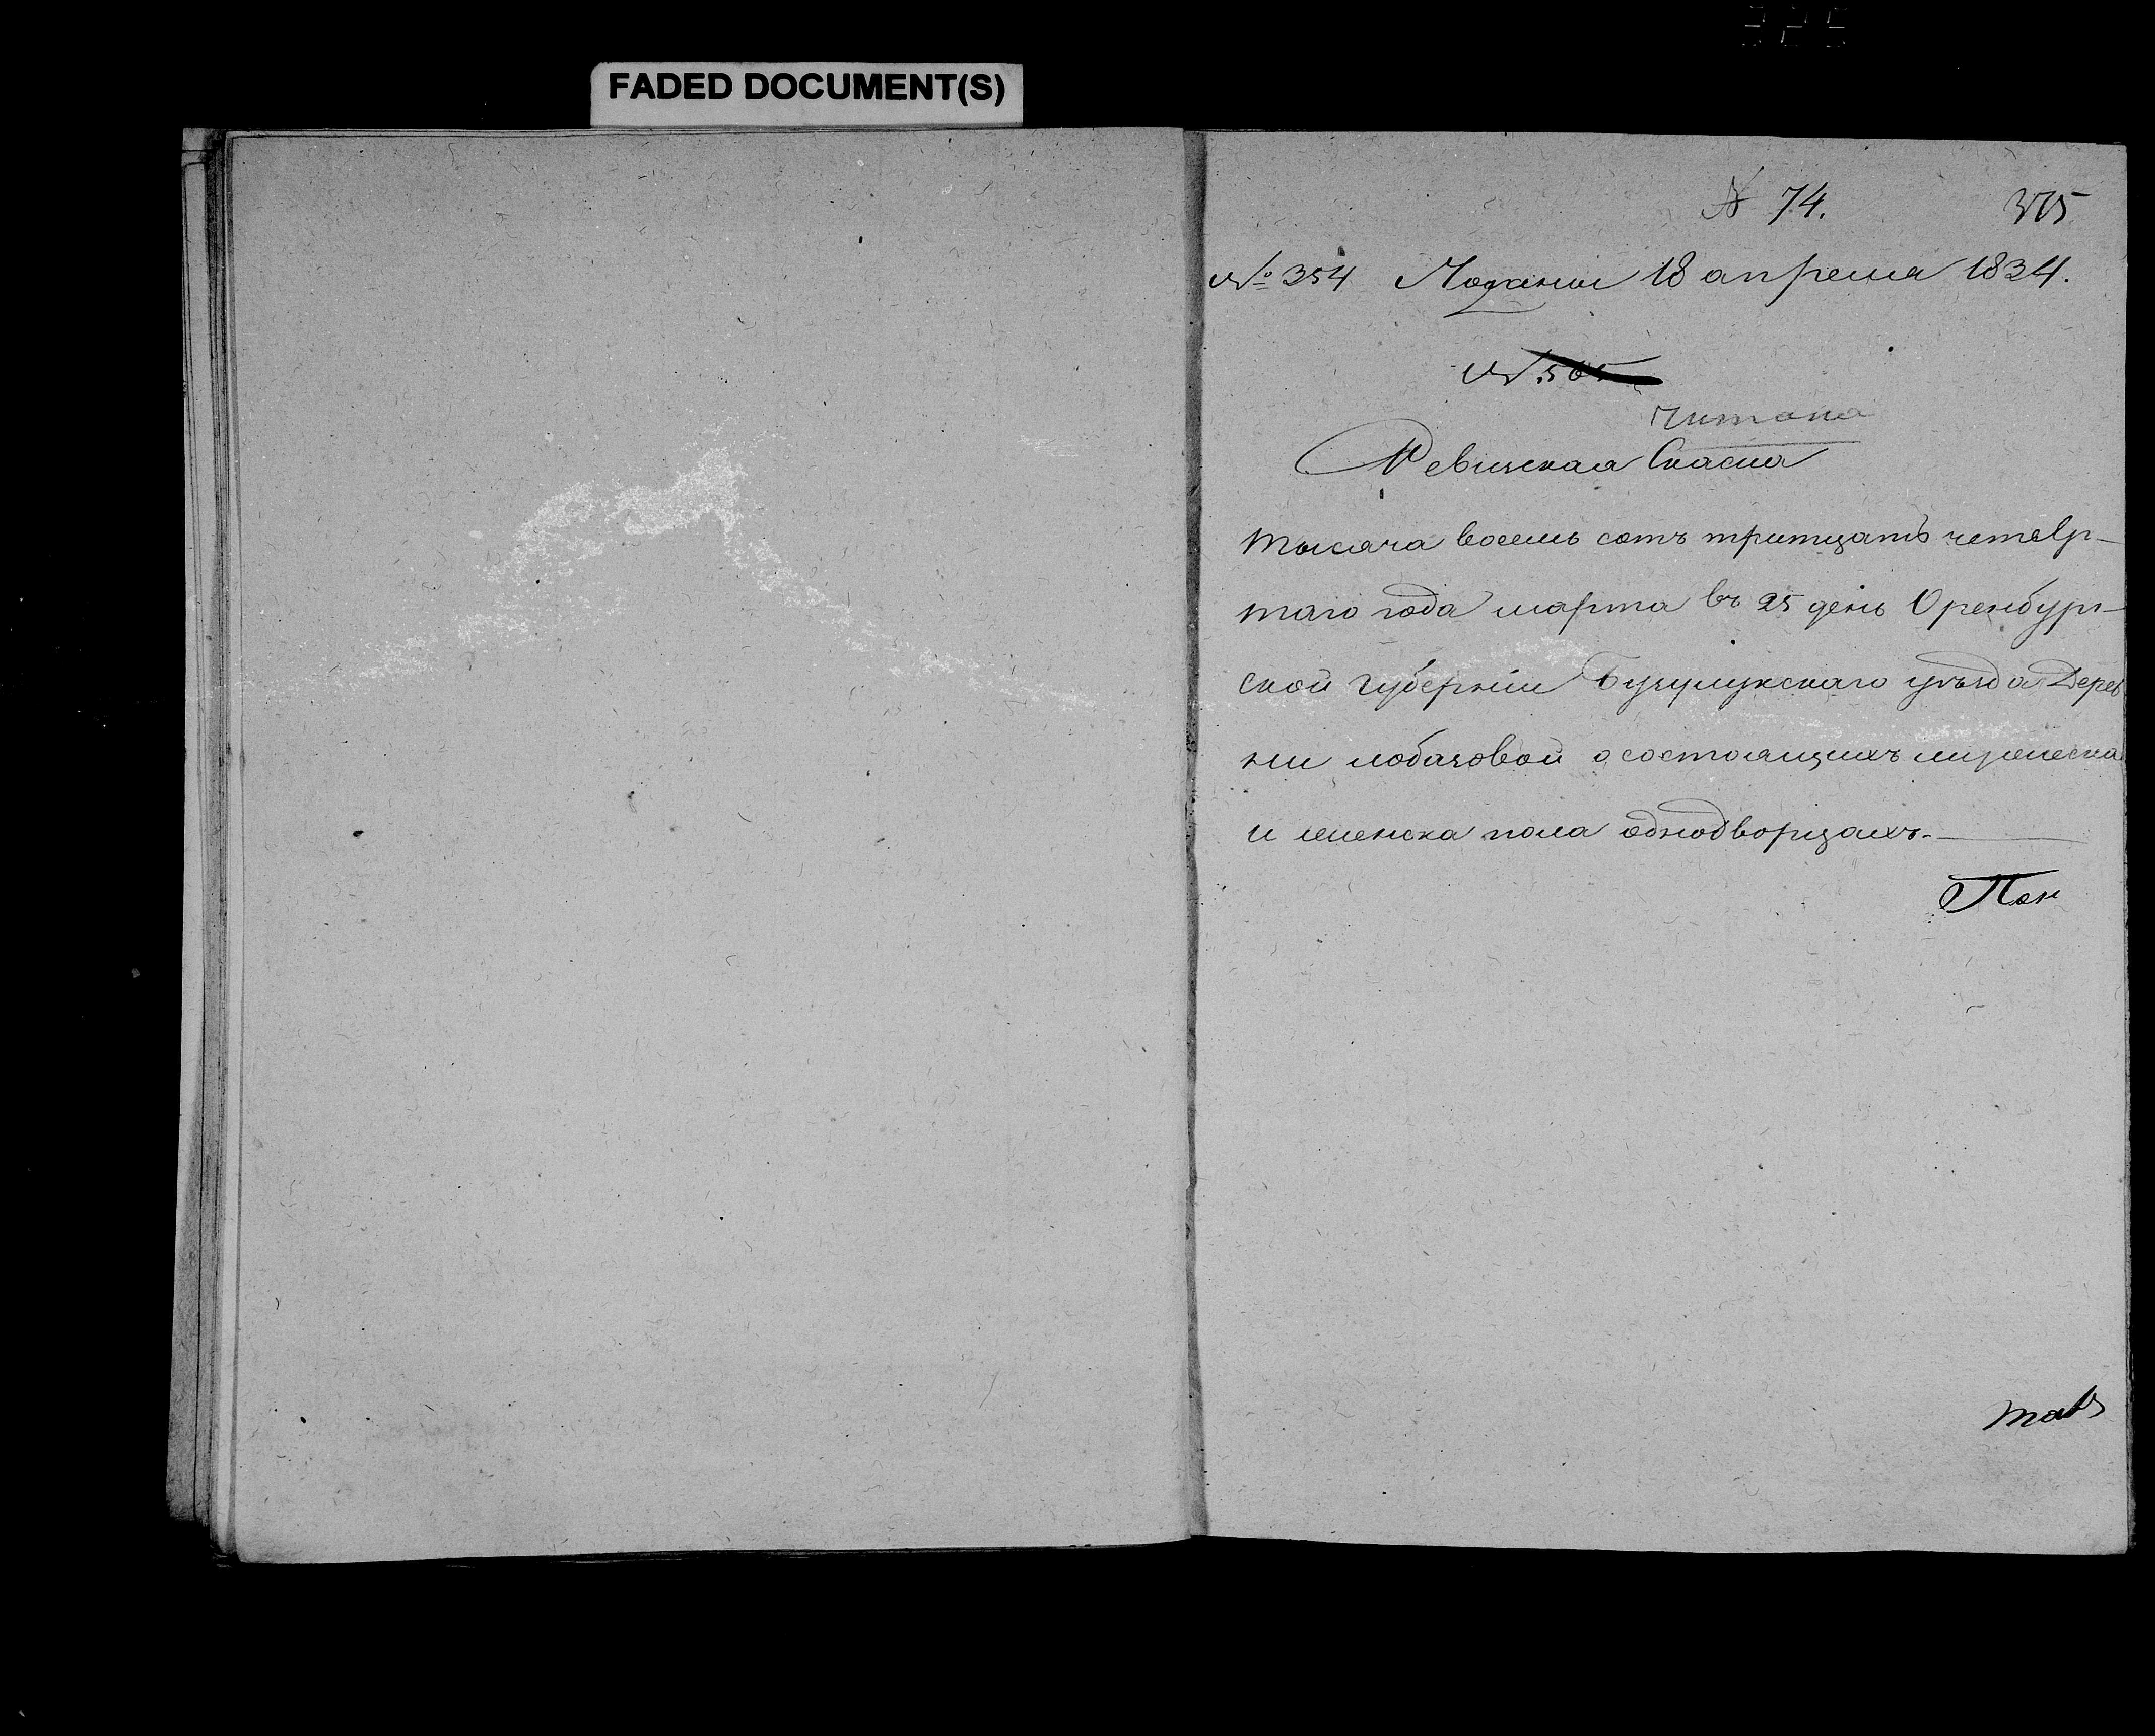 FADED DOCUMENT(S)
N 74.
375
№ 354 Поданы 18 апреля 1834.
Читана
Ревизская Сказка
тысяча восемь сотъ тритцать четвр-
таго года марта въ 25 день Оренбург-
ской губерніи Бузулукскаго уѣзда Дерев
ни лобазовой о состоящихъ мужеска
и женска пола однодворцахъ.